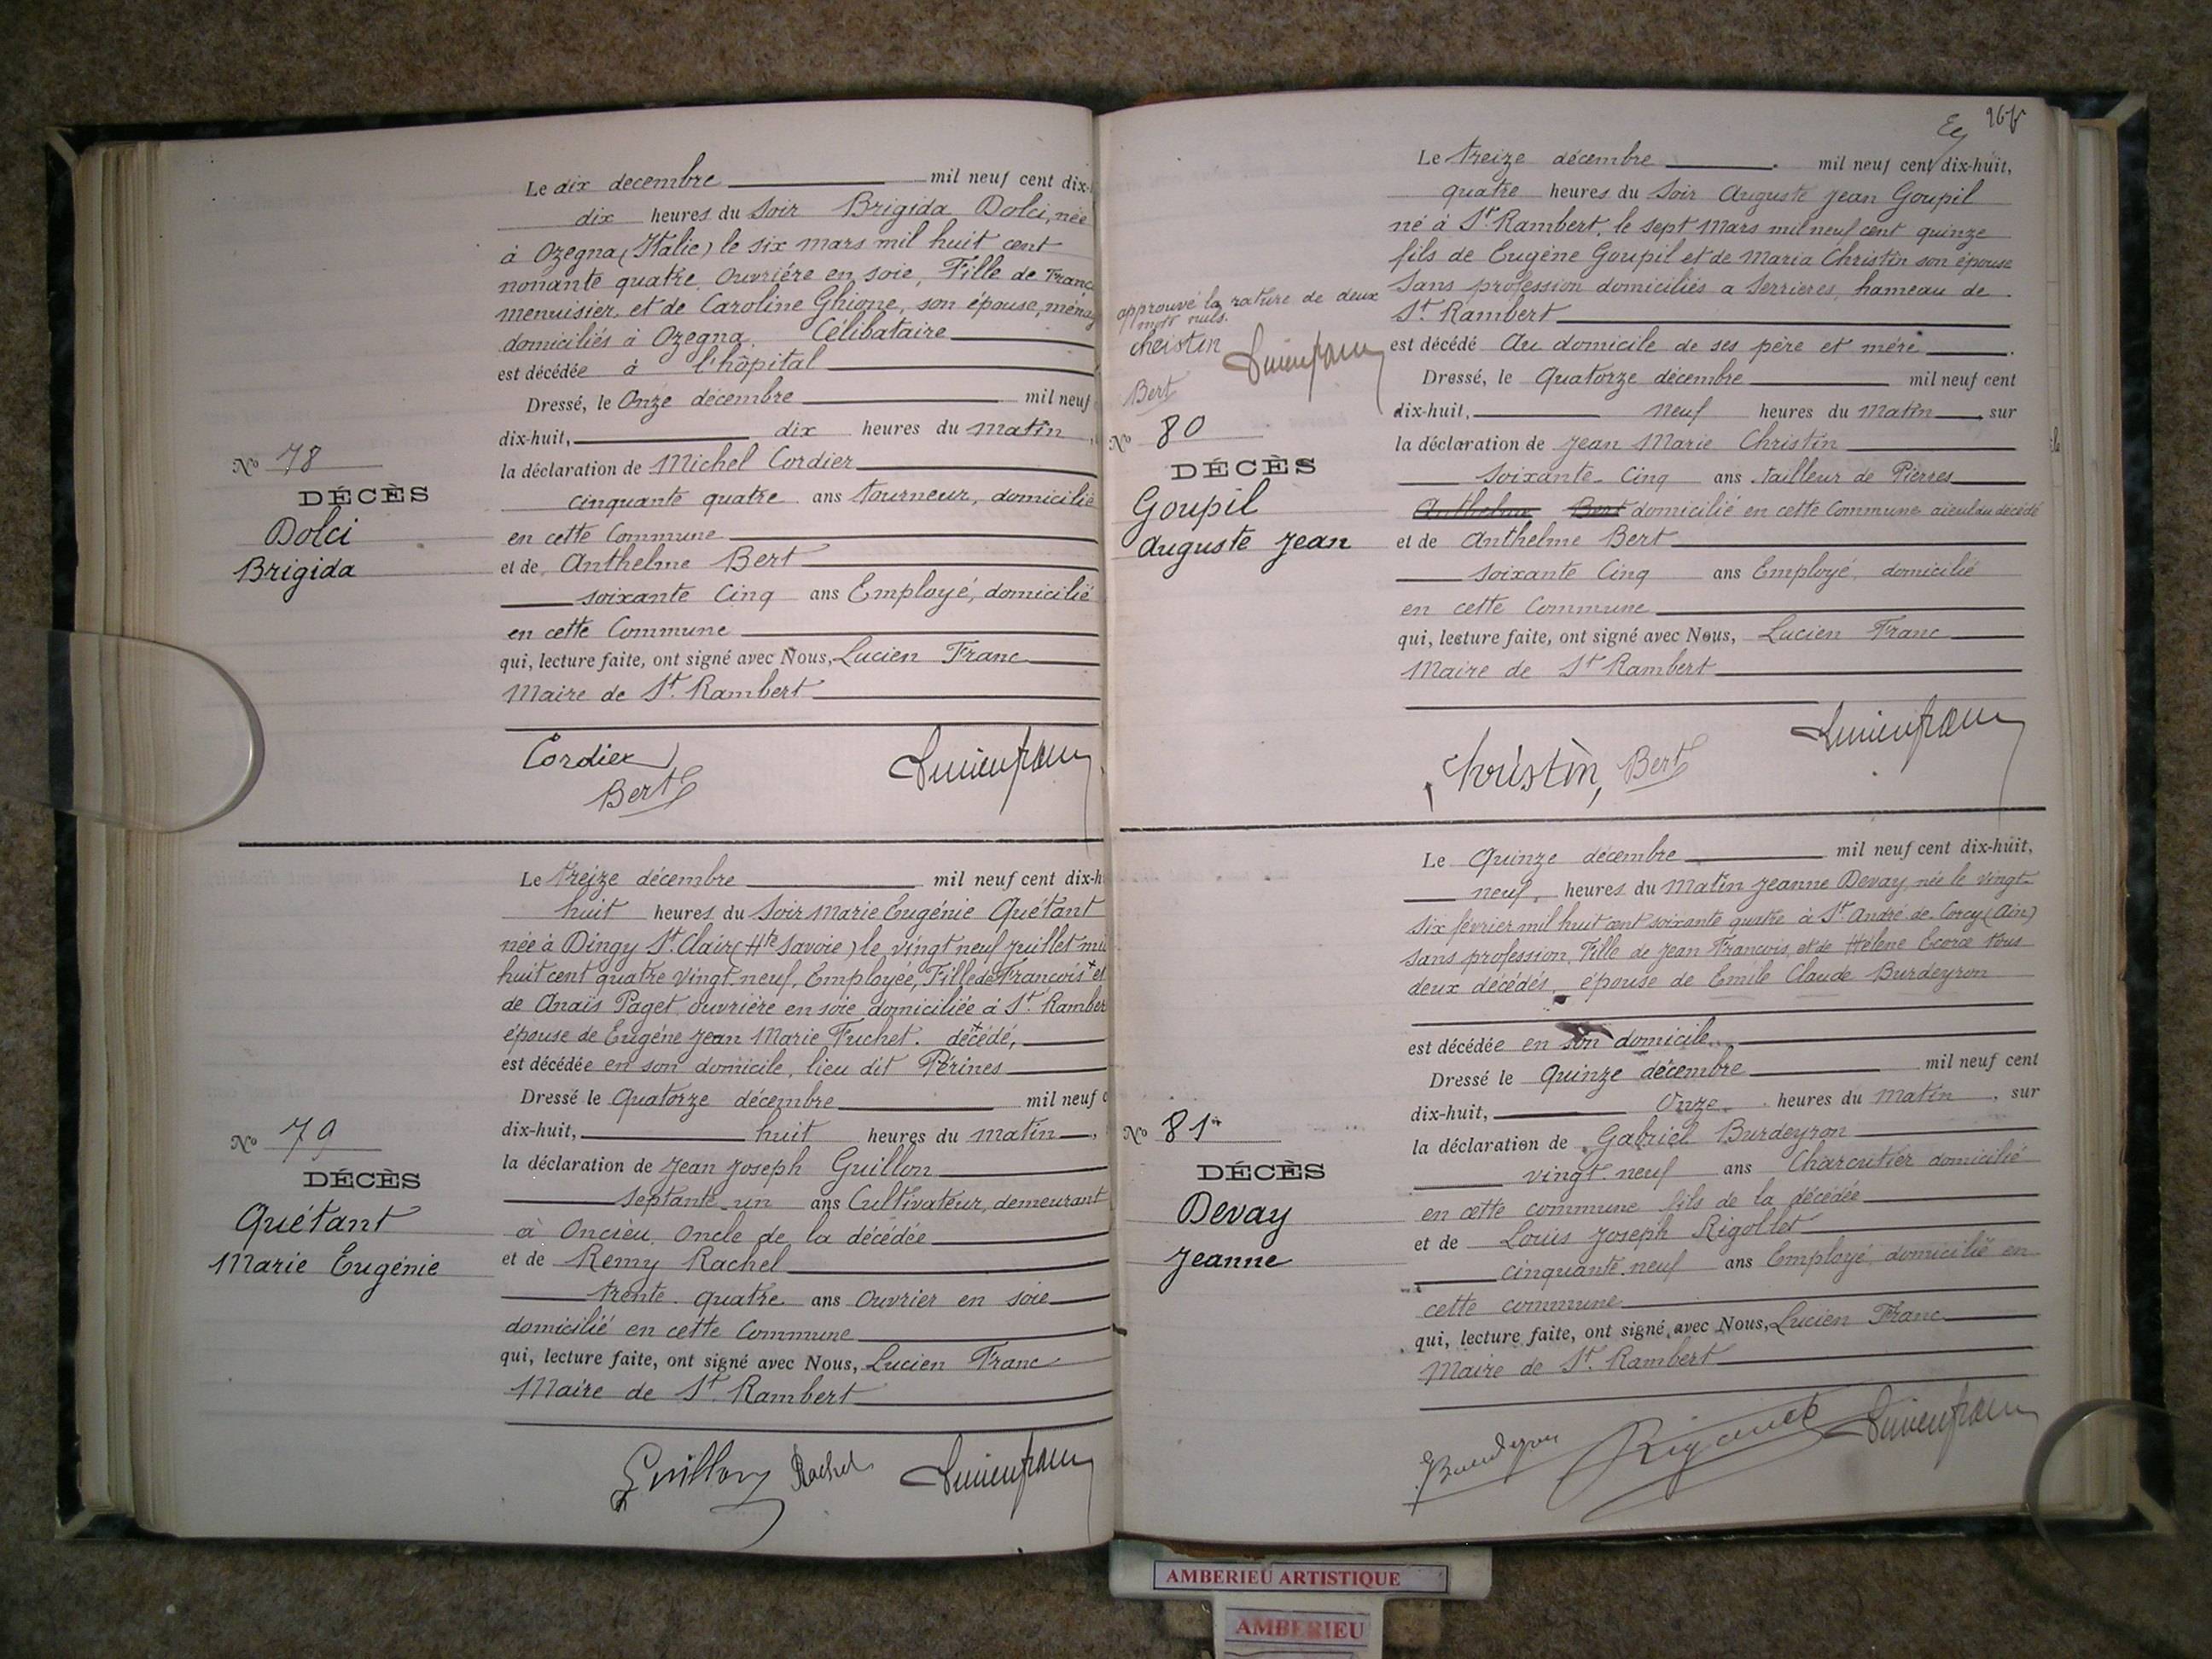 Le dix decembre mil neuf cent dix-
dix heures du Soir Brigida Dolci, née
à Ozegna (Italie) le six mars mil huit cent
nonante quatre, Ouvrière en soie, Fille de Franç
menuisier, et de Caroline Ghione, son épouse, ménag
domiciliés à Ozegna. Célibataire
est décédée à l'hôpital
Dressé, le Onze décembre mil neuf
dix-huit, dix heures du matin
la déclaration de Michel Cordier
cinquante quatre ans tourneur, domicilié
en cette Commune
et de Anthelme Bert
soixante Cinq ans Employé, domicilié
en cette Commune
qui, lecture faite, ont signé avec Nous, Lucien Franc
Maire de St. Rambert
Cordier
Bert
Lucien franc
No 78
DÉCÈS
Dolci
Brigida
Le treize décembre mil neuf cent dix-h
huit heures du Soir Marie Eugénie Quétant
née à Dingy St. Clair (Hte Savoie) le vingt neuf Juillet mil
huit cent quatre vingt neuf, Employée, Fille de Francois + et
de Anaïs Paget ouvrière en soie domiciliée à St. Ramber
épouse de Eugéne Jean Marie Fuchet. + décédé,
est décédée en son domicile, lieu dit Pérines
Dressé le Quatorze décembre mil neuf c
dix-huit, huit heures du matin,
la déclaration de Jean Joseph Guillon
Septante un ans Cultivateur, demeurant
à Oncieu, Oncle de la décédée
et de Remy Rachel
trente quatre ans ouvrier en soie
domicilié en cette Commune
qui, lecture faite, ont signé avec Nous, Lucien Franc
Maire de St. Rambert
Guillon Rachel Lucien franc
No 79
DÉCÈS
Quétant
Marie Eugénie
Le treize décembre mil neuf cent dix-huit,
quatre heures du Soir Auguste Jean Goupil
né à St. Rambert, le sept Mars mil neuf cent quinze
fils de Eugène Goupil et de Maria Christin son épouse
Sans profession domiciliés a Serrieres, hameau de
St. Rambert
est décédé Au domicile de ses père et mére
Dressé, le Quatorze décembre mil neuf cent
dix-huit, neuf heures du Matin, sur
la déclaration de Jean Marie Christin
soixante Cinq ans tailleur de Pierres
Anthelme Bert domicilié en cette Commune aieul du décédé
et de Anthelme Bert
soixante Cinq ans Employé, domicilié
en cette Commune
qui, lecture faite, ont signé avec Nous, Lucien Franc
Maire de St Rambert
Christin, Bert Lucien franc
approuvé la rature de deux
mots nuls.
christin Lucien franc
Bert
No 80
DÉCÈS
Goupil
Auguste Jean
Le Quinze décembre mil neuf cent dix-huit,
neuf, heures du Matin Jeanne Devay, née le vingt-
six février mil huit cent soixante quatre à St. André de Corcy (Ain)
sans profession, Fille de Jean Francois, et de Hélène Ecorce tous
deux décédés, épouse de Emile Claude Burdeyron
est décédée en son domicile.
Dressé le Quinze décembre mil neuf cent
dix-huit, Onze heures du Matin, sur
la déclaration de Gabriel Burdeyron
vingt neuf ans Charcutier domicilié
en cette commune fils de la décédée
et de Louis Joseph Rigollet
cinquante neuf ans Employé domicilié en
cette commune
qui, lecture faite, ont signé avec Nous, Lucien Franc
Maire de St. Rambert
Lucien franc
No 81
DÉCÈS
Devay
Jeanne
AMBERIEU ARTISTIQUE
AMBERIEU